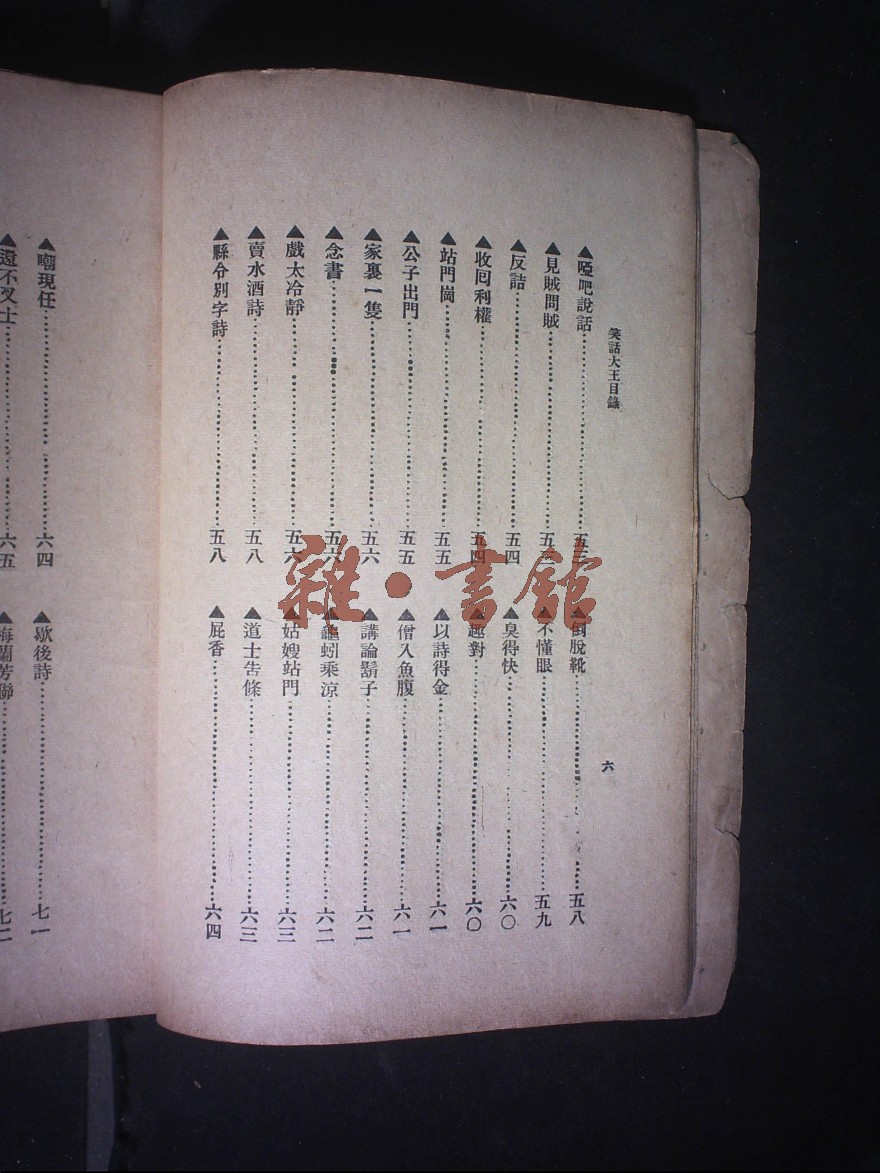 笑話大王目錄
六
▲啞吧說話…………五三
▲見賊問賊…………五三
▲反詰…………五四
▲收回利權…………五四
▲站門崗…………五五
▲公子出門…………五五
▲家裏一隻…………五六
▲念書…………五六
▲戲太冷靜…………五六
▲賣水酒詩…………五八
▲縣令別字詩…………五八
▲倒脫靴…………五八
▲不懂眼…………五九
▲臭得快…………六〇
▲趣對…………六〇
▲以詩得金…………六一
▲僧入魚腹…………六一
▲講論鬍子…………六二
▲龜蚓乘涼…………六二
▲姑嫂站門…………六三
▲道士告條…………六三
▲屁香…………六四
▲嘲現任…………六四
▲還不叉士…………六五
▲歇後詩…………七一
梅蘭芳聯…………七二
雜·書館